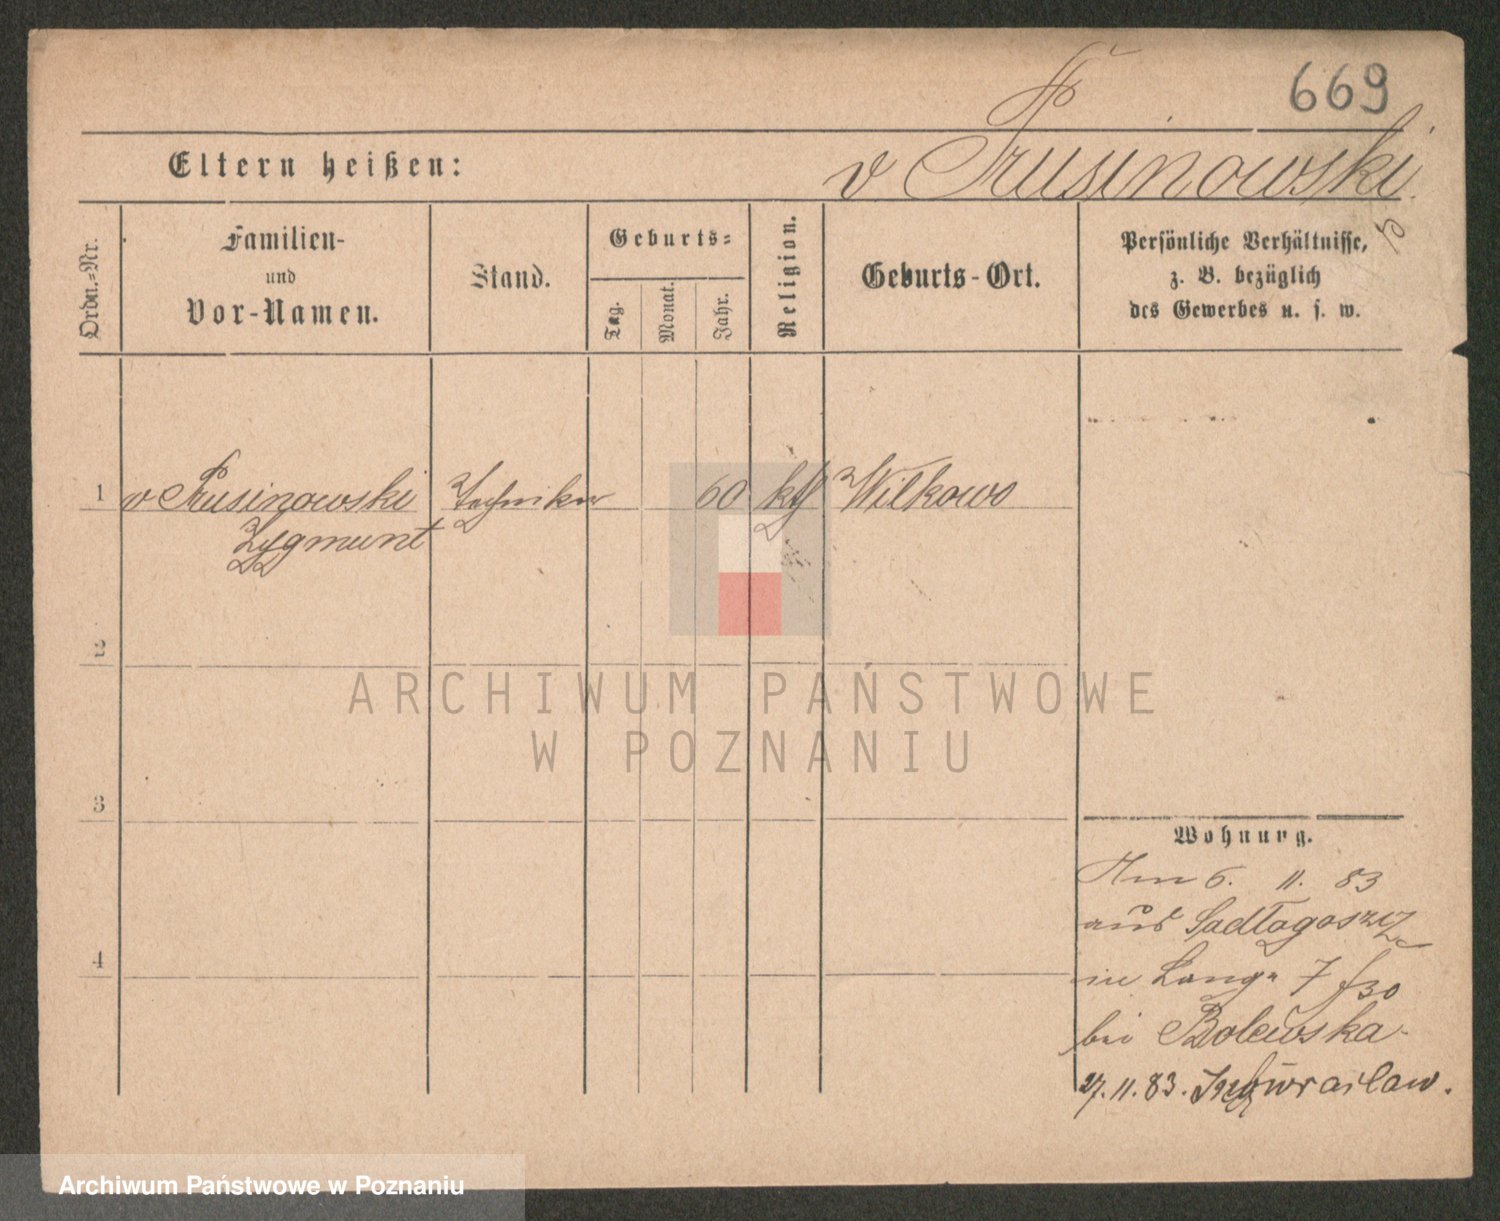 669
Eltern heißen:
v Prusinowski
Ordn.-Nr.
Familien-
und
Vor-Namen.
Stand.
Geburts-
Tag.
Monat.
Jahr.
Religion.
Geburts-Ort.
Persönliche Verhältnisse,
z. B. bezüglich
des Gewerbes u. s. w.
1
v Prusinowski
Zygmunt
Techniker
60
kth
Wilkowo
2
3
4
Wohnung.
Am 6. 11. 83
aus
in Lang. 7
bei Bolewska
27. 11. 83. Inowraclaw.
ARCHIWUM PAŃSTWOWE
W POZNANIU
Archiwum Państwowe w Poznaniu